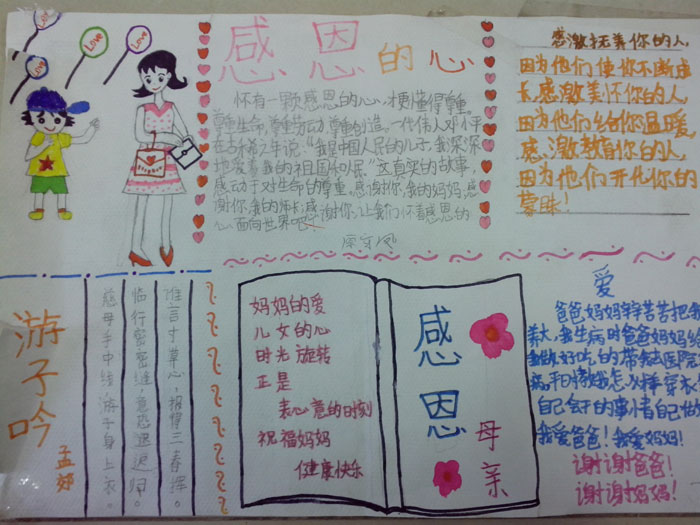 Love
Love
感恩的心
怀有一颗感恩的心,才更懂得尊重
尊重生命,尊重劳动,尊重创造。一代伟人邓小平
在古稀之年说:“我是中国人民的儿子,我深深
地爱着我的祖国和人民”这真实的故事,
感动于对生命的尊重。感谢你,我的妈妈,感
谢你,我的师长,感谢你,让我们怀着感恩的
心面向世界吧
感激抚养你的人,
因为他们使你不断成
长感激关怀你的人
因为他们给你温暖
感激教育你的人
因为他们开化你的
蒙昧!
游子吟
孟郊
慈母手中线,游子身上衣。
临行密密缝,意恐迟迟归。
谁言寸草心,报得三春晖。
妈妈的爱
儿女的心
时光旋转
正是
表心意的时刻
祝福妈妈
健康快乐
感恩
母亲
爱
爸爸妈妈辛辛苦苦把我
养大,我生病时爸爸妈妈给
我做好吃的带我去医院
自己会干的事情自己做
我爱爸爸!我爱妈妈!
谢谢爸爸!
谢谢妈妈!